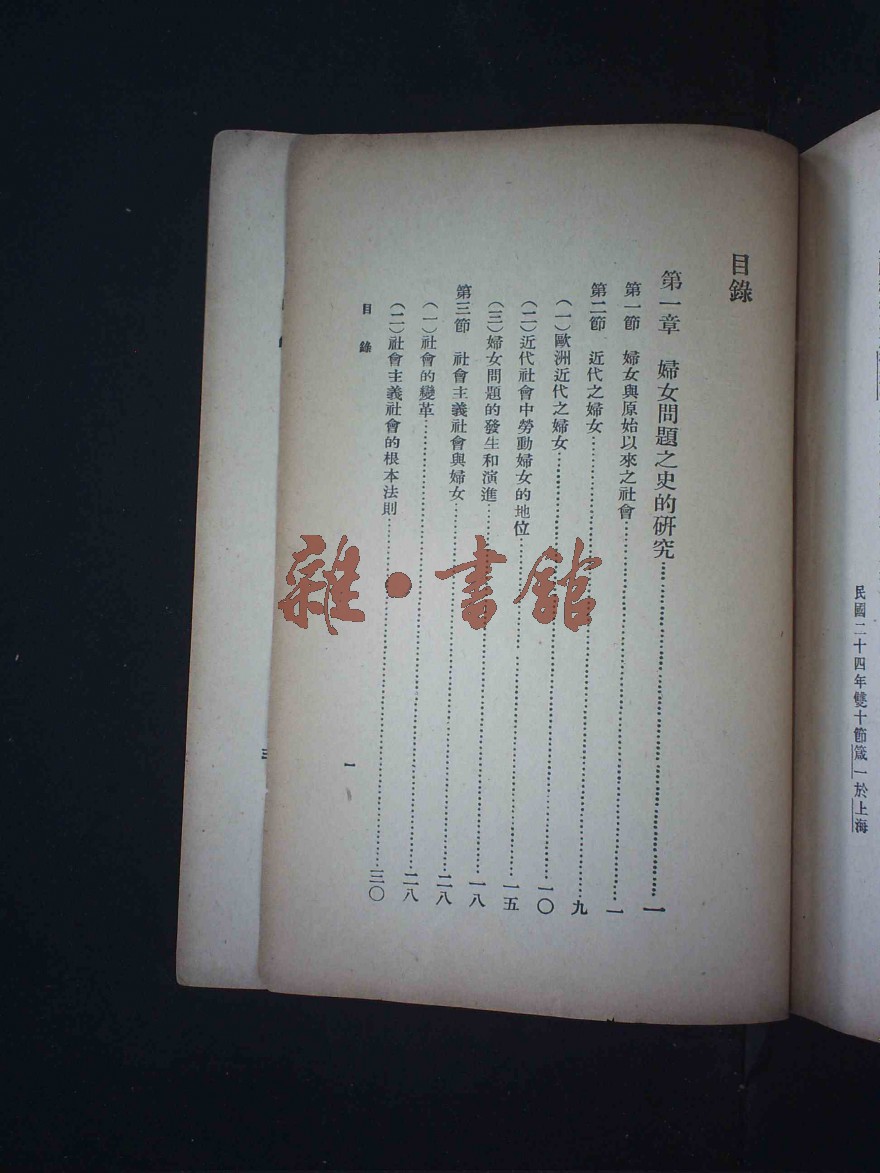 民國二十四年雙十節箴一於上海
目錄
第一章 婦女問題之史的研究……一
第一節 婦女與原始以來之社會……一
第二節 近代之婦女……九
(一)歐洲近代之婦女……一〇
(二)近代社會中勞動婦女的地位……一五
(三)婦女問題的發生和演進……一八
第三節 社會主義社會與婦女……二八
(一)社會的變革……二八
(二)社會主義社會的根本法則……三〇
目錄
一
三
雜·書館